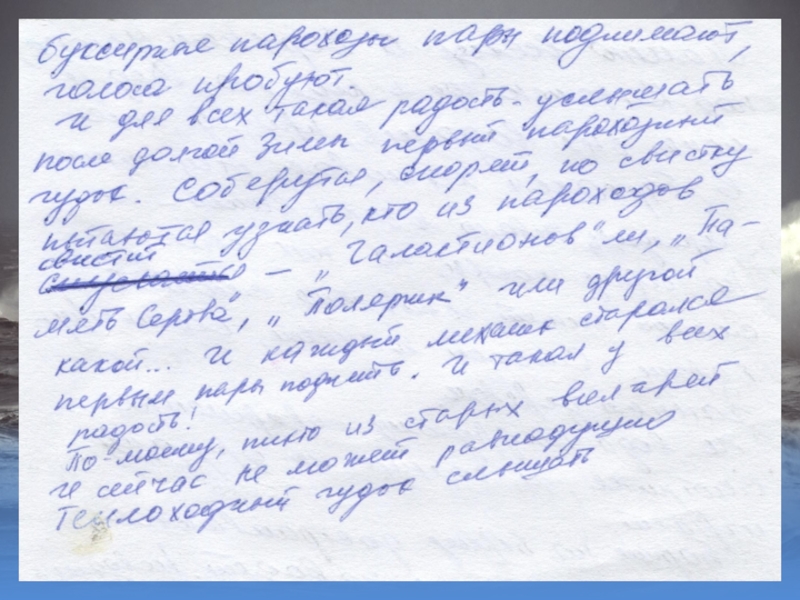 буксирные пароходы пары поднимают,
голоса пробуют.
И для всех такая радость - услышать
после долгой зимы первый пароходный
гудок. Соберутся, спорят, по свистку
пытаются узнать, кто из пароходов
свистит
— „Галактионов" ли, „Па-
мять Сергова", „Полярник" или другой
какой... И каждый механик старался
первым пары поднять. И такая у всех
радость!
По-моему, никто из старых
и сейчас не может равнодушно
Теплоходный гудок слышать